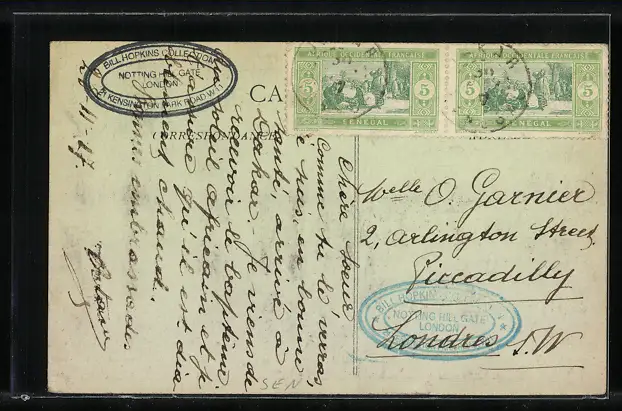 BILL HOPKINS COLLECTION
NOTTING HILL GATE
LONDON
KENSINGTON PARK ROAD W.11
AFRIQUE OCCIDENTALE FRANÇAISE
5 5
SENEGAL
AFRIQUE OCCIDENTALE FRANÇAISE
5 5
SENEGAL
CA
CORRESPONDANCE
Chère sœur
Comme tu le verras,
je suis, en bonne
santé, arrivé à
Dakar. Je viens de
recevoir le baptême
soleil africain et je
t'assure qu'il est dia
chaud.
embrassade.
Melle O. Garnier
2, Arlington Street,
Piccadilly
Londres S.W
BILL HOPKINS
NOTTING HILL GATE
LONDON
SEN